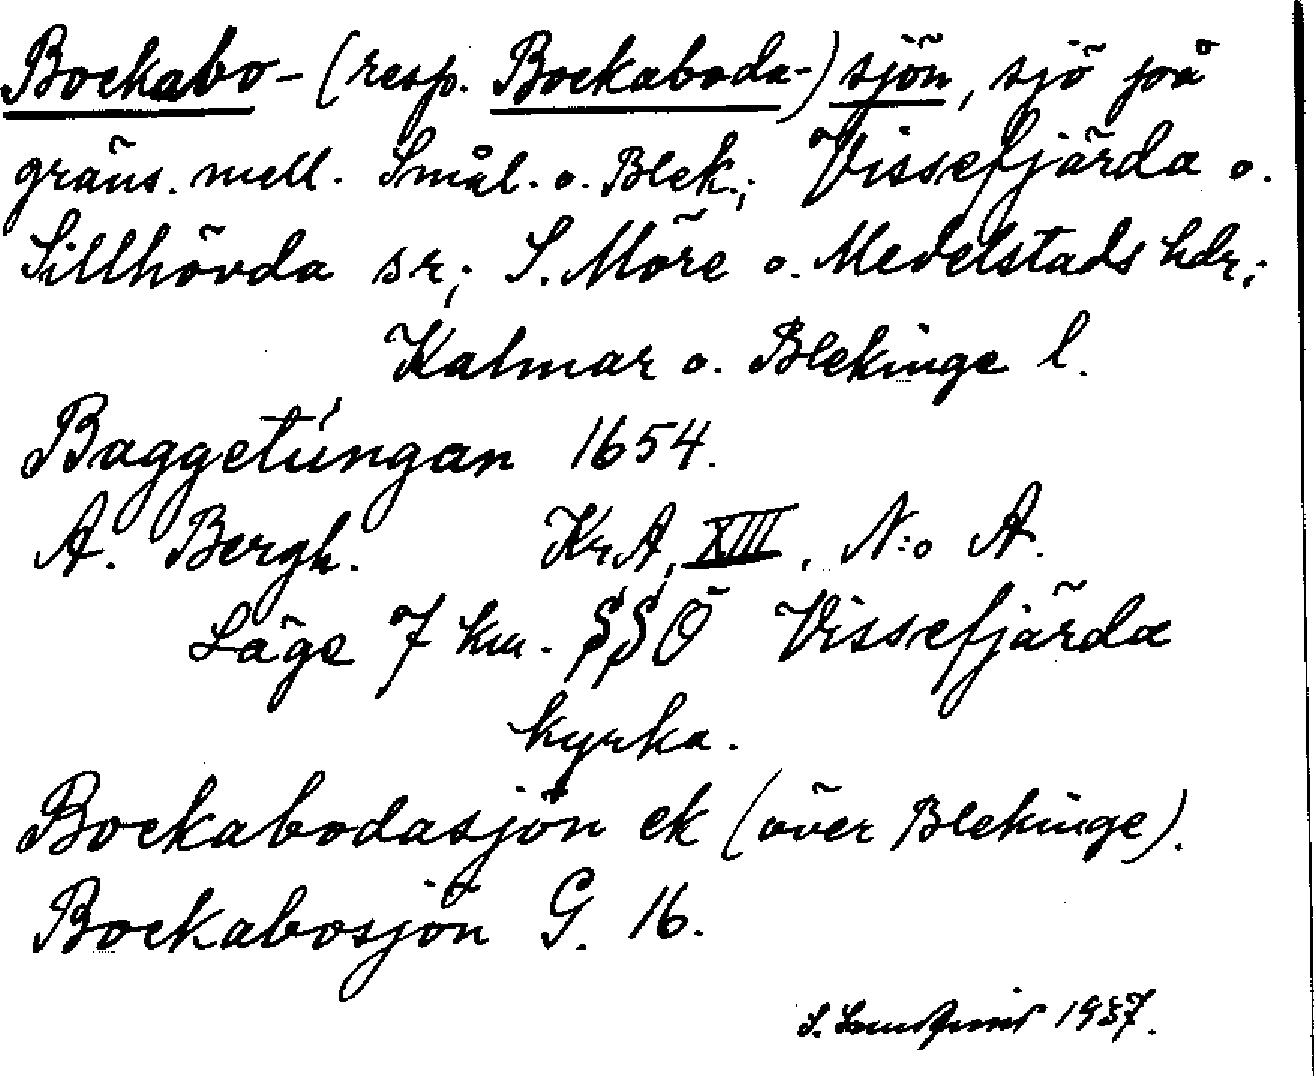 Bockabo- (resp. Bockaboda-) sjön, sjö på
gräns. mell. Smål. o. Blek.; Vissefjärda o.
Sillhövda sr; S. Möre o. Medelstads hdr;
Kalmar o. Blekinge l.
Baggetúngan 1654.
A. Bergh. KrA, XIII, N:o A.
Läge 7 km. SSÖ Vissefjärda
kyrka.
Bockabodasjön ek (över Blekinge).
Bockabosjön G. 16.
S. 1937.